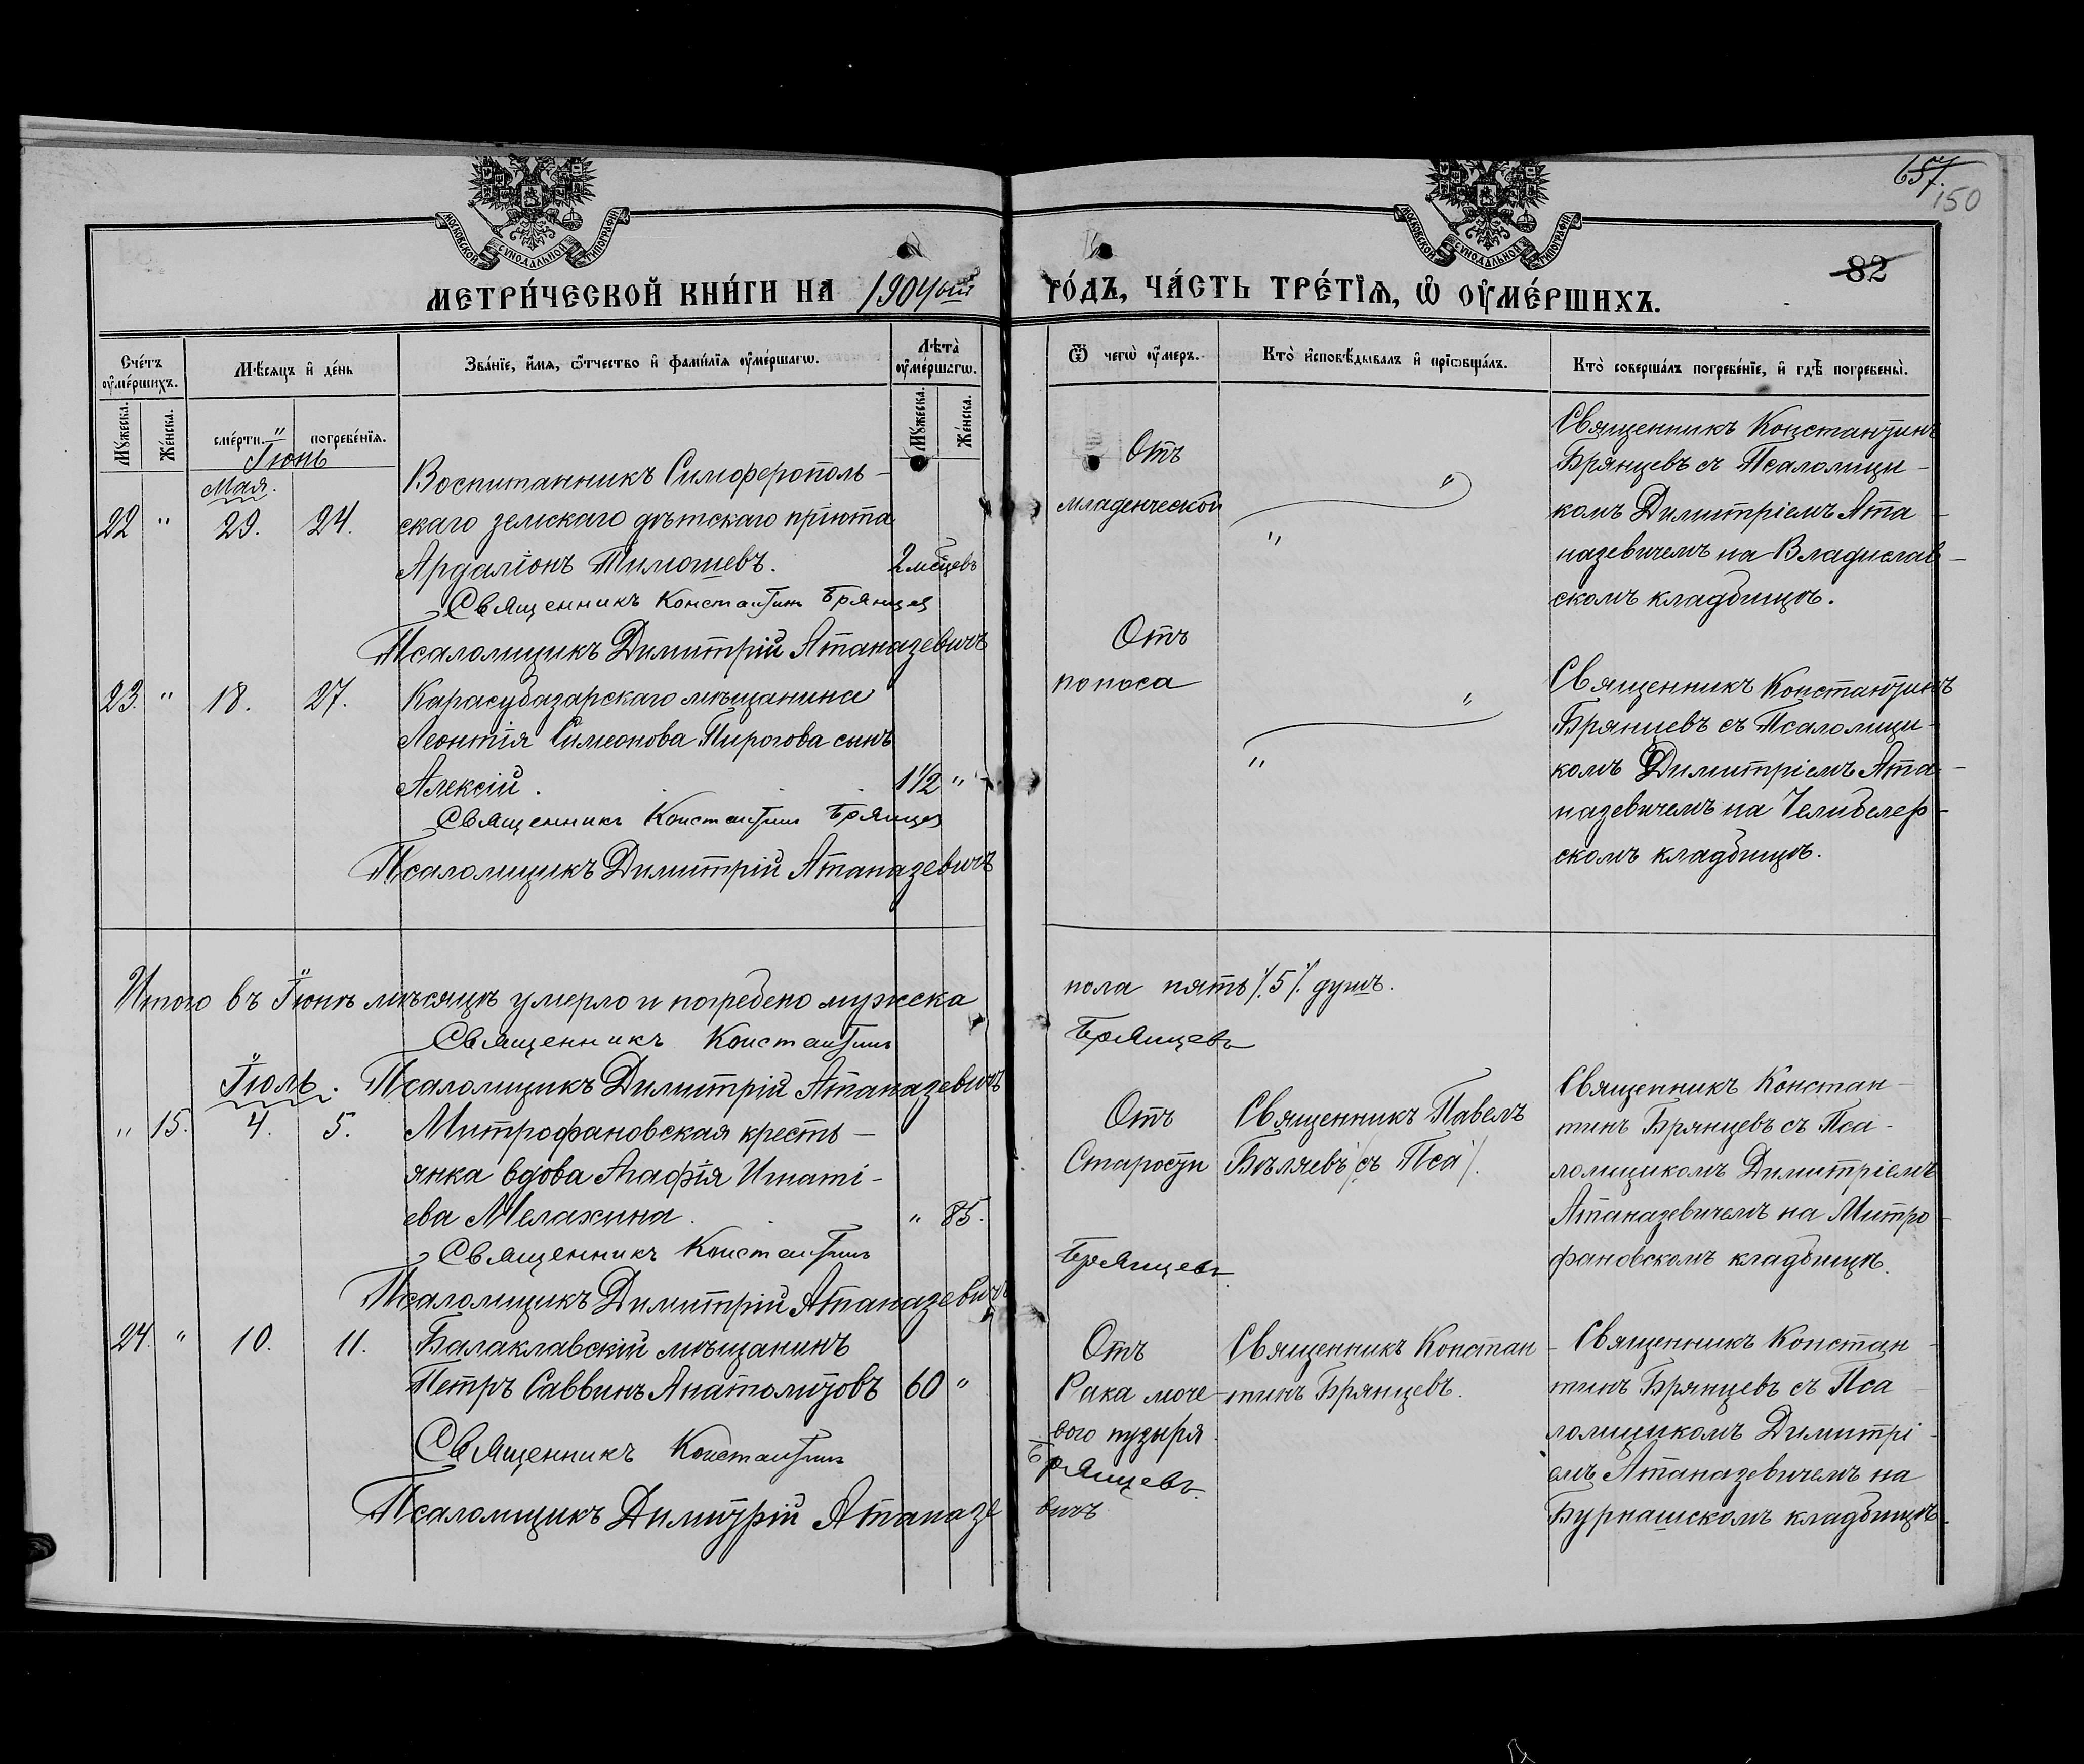 657.
150
82
МОСКОВСКОЙ СѴНОДАЛЬНОЙ ТИПОГРАФІИ
МОСКОВСКОЙ СѴНОДАЛЬНОЙ ТИПОГРАФІИ
МЕТРИ́ЧЕСКОЙ КНИ́ГИ НА 1904ый ГО́ДЪ, ЧА́СТЬ ТРЕ́ТЇѦ, Ѡ҆ ОУ҆МЕ́РШИХЪ.
Сче́тъ оу҆ме́ршихъ.
Мꙋ́жеска.
Же́нска.
Мѣ́сѧцъ и҆ де́нь
сме́рти.
погребе́нїѧ.
Зва́нїе, и҆́мѧ, ѻ҆́тчество и҆ фами́лїѧ оу҆ме́ршагѡ.
Лѣ́та̀ оу҆ме́ршагѡ.
Мꙋ́жеска.
Же́нска.
Ѿ чегѡ̀ оу҆́меръ.
Кто̀ и҆сповѣ́дывалъ и҆ прїѡбща́лъ.
Кто̀ соверша́лъ погребе́нїе, и҆ гдѣ̀ погребены̀.
Іюнь
Мая.
22 " 29. 24.
Воспитанникъ Симферополь-
скаго земскаго дѣтскаго пріюта
Ардаліонъ Тимошевъ. 2 мѣсцевъ
Священникъ Константин Брянцев
Псаломщикъ Димитрій Атаназевичъ
Отъ
младенческой
"
"
Священникъ Константинъ
Брянцевъ съ Псаломщи-
комъ Димитріемъ Ата-
назевичемъ на Владислав-
скомъ кладбищѣ.
23. " 18. 27.
Карасубазарскаго мѣщанина
Леонтія Симеонова Пирогова сынъ
Алексій. 1 1/2 "
Священникъ Константин Брянцев
Псаломщикъ Димитрій Атаназевичъ
Отъ
поноса
"
"
Священникъ Константинъ
Брянцевъ съ Псаломщи-
комъ Димитріемъ Ата-
назевичемъ на Челибелер-
скомъ кладбищѣ.
Итого въ Іюнѣ мѣсяцѣ умерло и погребено мужеска пола пять /. 5 /. душъ.
Священникъ Константинъ Брянцевъ
Іюль. Псаломщикъ Димитрій Атаназевичъ
" 15. 4. 5.
Митрофановская кресть-
янка вдова Агафія Игнаті-
ева Мелахина. " 85.
Священникъ Константинъ Брянцевъ
Псаломщикъ Димитрій Атаназевичъ
Отъ
Старости
Священникъ Павелъ
Бѣляевъ /. съ Пса /.
Священникъ Констан-
тинъ Брянцевъ съ Пса-
ломщикомъ Димитріемъ
Атаназевичемъ на Митро-
фановскомъ кладбищѣ.
24. " 10. 11.
Балаклавскій мѣщанинъ
Петръ Саввинъ Анатолитовъ 60 "
Священникъ Константинъ Брянцевъ
Псаломщикъ Димитрій Атаназевичъ
Отъ
Рака моче-
вого пузыря.
Священникъ Констан-
тинъ Брянцевъ.
Священникъ Констан-
тинъ Брянцевъ съ Пса-
ломщикомъ Димитрі-
емъ Атаназевичемъ на
Бурнашскомъ кладбищѣ.